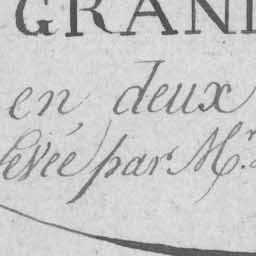 GRAN
en deux
Levée par Mr.